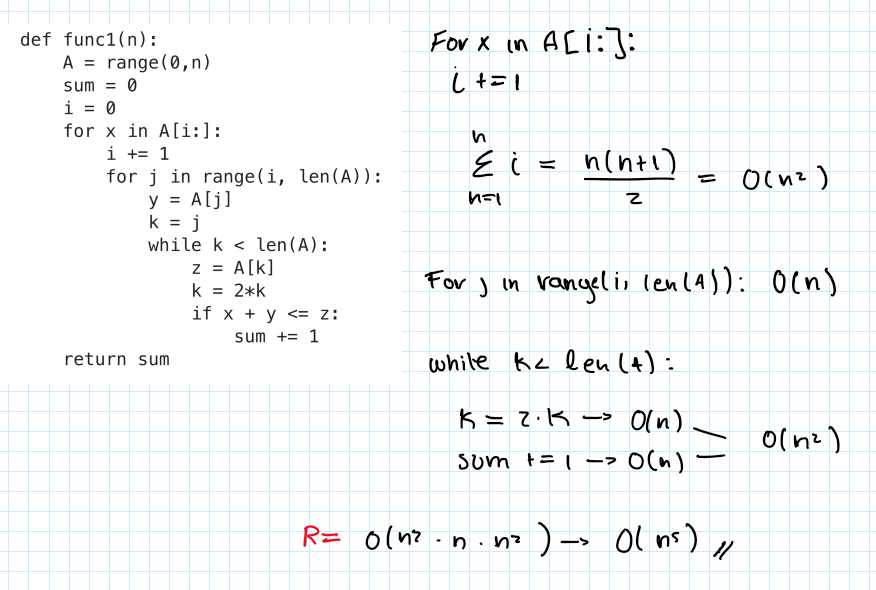 def func1(n):
    A = range(0,n)
    sum = 0
    i = 0
    for x in A[i:]:
        i += 1
        for j in range(i, len(A)):
            y = A[j]
            k = j
            while k < len(A):
                z = A[k]
                k = 2*k
                if x + y <= z:
                    sum += 1
    return sum
For x in A[i:]:
i += 1
n
Σ i = n(n+1)/2 = O(n²)
n=1
For j in range(i, len(A)): O(n)
while k< len(A):
k = 2·k → O(n)
sum += 1 → O(n)
O(n²)
R= O(n² · n · n²) → O(n⁵) //